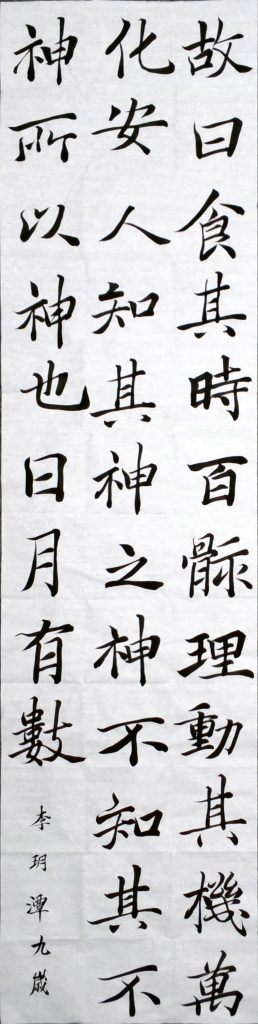 故曰食其時百骸理動其機萬
化安人知其神之神不知其不
神所以神也日月有數
李玥潭九歲